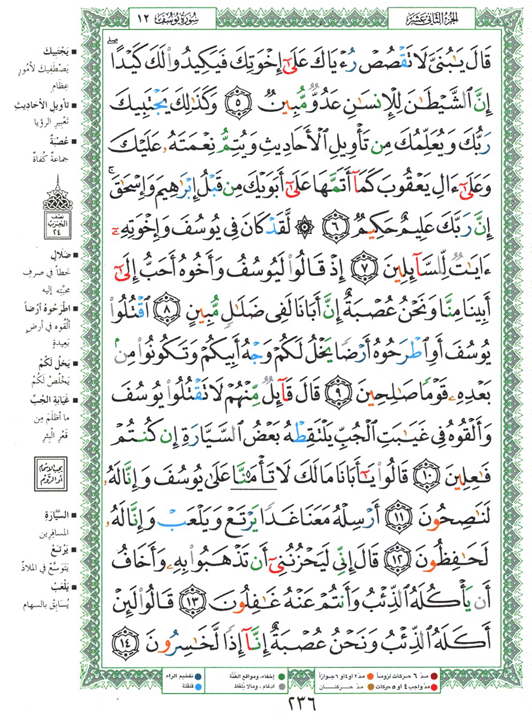 الجزء الثاني عشر
سورة يوسف ١٢
قَالَ يَٰبُنَىَّ لَا تَقْصُصْ رُءْيَاكَ عَلَىٰٓ إِخْوَتِكَ فَيَكِيدُوا۟ لَكَ كَيْدًا ۖ
إِنَّ ٱلشَّيْطَٰنَ لِلْإِنسَٰنِ عَدُوٌّ مُّبِينٌ ٥ وَكَذَٰلِكَ يَجْتَبِيكَ
رَبُّكَ وَيُعَلِّمُكَ مِن تَأْوِيلِ ٱلْأَحَادِيثِ وَيُتِمُّ نِعْمَتَهُۥ عَلَيْكَ
وَعَلَىٰٓ ءَالِ يَعْقُوبَ كَمَآ أَتَمَّهَا عَلَىٰٓ أَبَوَيْكَ مِن قَبْلُ إِبْرَٰهِيمَ وَإِسْحَٰقَ ۚ
إِنَّ رَبَّكَ عَلِيمٌ حَكِيمٌ ٦ ۞ لَّقَدْ كَانَ فِى يُوسُفَ وَإِخْوَتِهِۦٓ
ءَايَٰتٌ لِّلسَّآئِلِينَ ٧ إِذْ قَالُوا۟ لَيُوسُفُ وَأَخُوهُ أَحَبُّ إِلَىٰٓ
أَبِينَا مِنَّا وَنَحْنُ عُصْبَةٌ إِنَّ أَبَانَا لَفِى ضَلَٰلٍ مُّبِينٍ ٨ ٱقْتُلُوا۟
يُوسُفَ أَوِ ٱطْرَحُوهُ أَرْضًا يَخْلُ لَكُمْ وَجْهُ أَبِيكُمْ وَتَكُونُوا۟ مِنۢ
بَعْدِهِۦ قَوْمًا صَٰلِحِينَ ٩ قَالَ قَآئِلٌ مِّنْهُمْ لَا تَقْتُلُوا۟ يُوسُفَ
وَأَلْقُوهُ فِى غَيَٰبَتِ ٱلْجُبِّ يَلْتَقِطْهُ بَعْضُ ٱلسَّيَّارَةِ إِن كُنتُمْ
فَٰعِلِينَ ١٠ قَالُوا۟ يَٰٓأَبَانَا مَا لَكَ لَا تَأْمَ۫نَّا عَلَىٰ يُوسُفَ وَإِنَّا لَهُۥ
لَنَٰصِحُونَ ١١ أَرْسِلْهُ مَعَنَا غَدًا يَرْتَعْ وَيَلْعَبْ وَإِنَّا لَهُۥ
لَحَٰفِظُونَ ١٢ قَالَ إِنِّى لَيَحْزُنُنِىٓ أَن تَذْهَبُوا۟ بِهِۦ وَأَخَافُ
أَن يَأْكُلَهُ ٱلذِّئْبُ وَأَنتُمْ عَنْهُ غَٰفِلُونَ ١٣ قَالُوا۟ لَئِنْ
أَكَلَهُ ٱلذِّئْبُ وَنَحْنُ عُصْبَةٌ إِنَّآ إِذًا لَّخَٰسِرُونَ ١٤
يَجْتَبِيكَ
يَصْطَفِيكَ لأُمُورٍ
عِظَامٍ
تأويل الأحاديث
تَعْبيرِ الرؤيا
عُصْبَةٌ
جماعةٌ كُفاةٌ
نصف
الحزب
٢٤
ضَلالٍ
خطأ في صرفِ
محبّته إليه
اطْرَحُوهُ أرْضاً
ألْقُوه في أرضٍ
بَعيدةٍ
يَخْلُ لَكُمْ
يَخْلُصْ لَكُمْ
غَيَابَةِ الجُبِّ
ما أظلمَ مِن
قَعْرِ البئرِ
السيَّارَةِ
المسافِرين
يَرْتَعْ
يَتَوسَّعْ في الملاذِّ
يَلْعَبْ
يُسَابِقْ بالسِّهام
مدّ ٦ حركات لزوماً
مدّ ٢ أو ٤ أو ٦ جوازاً
إخفاء، ومواقع الغُنَّة
تفخيم الراء
مدّ واجب ٤ أو ٥ حركات
مدّ حركتان
إدغام، وما لا يُلفَظ
قلقلة
٢٣٦